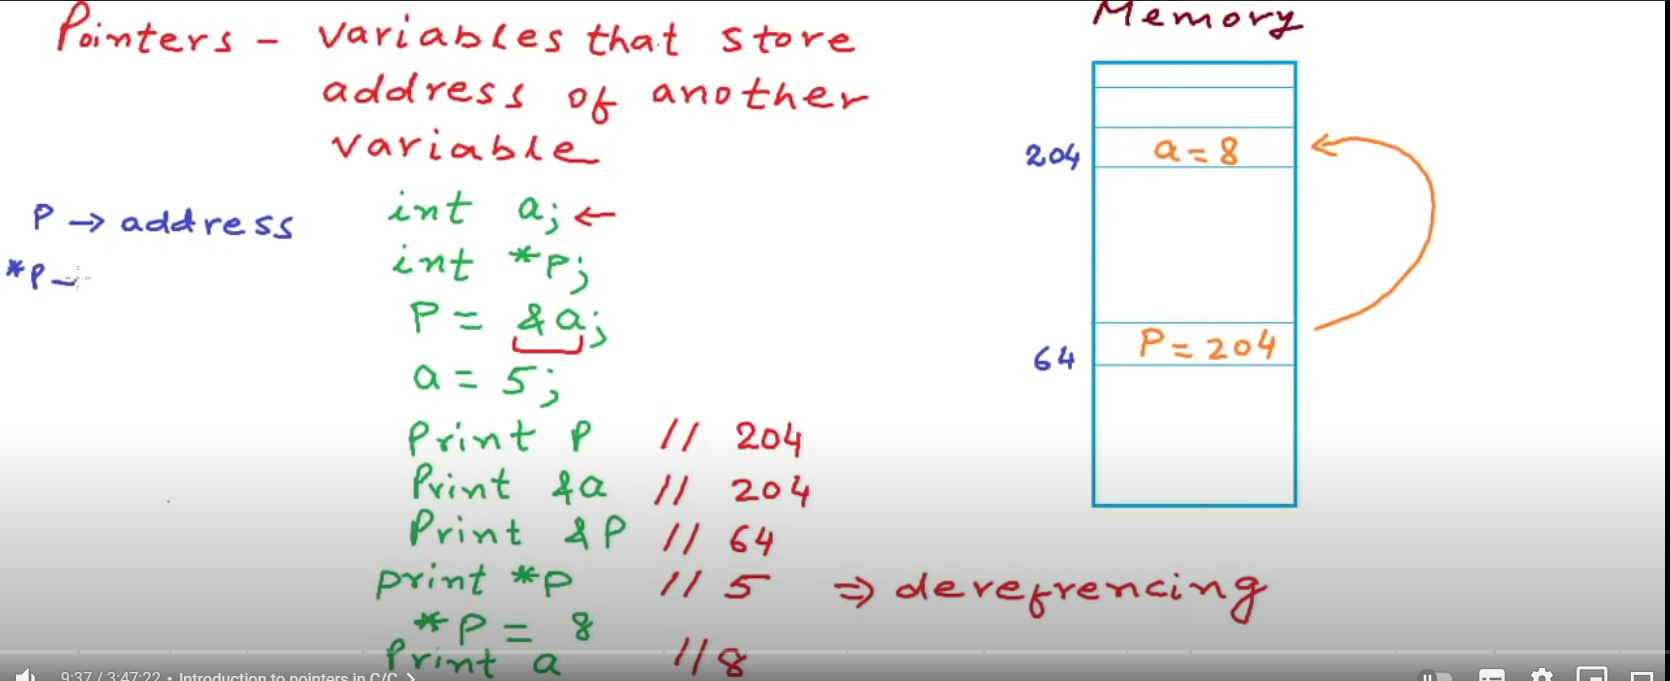 Pointers - variables that store
address of another
variable
Memory
204 a = 8
P → address
int a; ←
*P -
int *P;
P = &a;
64 P = 204
a = 5;
Print P // 204
Print &a // 204
Print &P // 64
print *p // 5 ⇒ derefrencing
*P = 8
Print a // 8
9:37 / 3:47:22 • Introduction to pointers in C/C